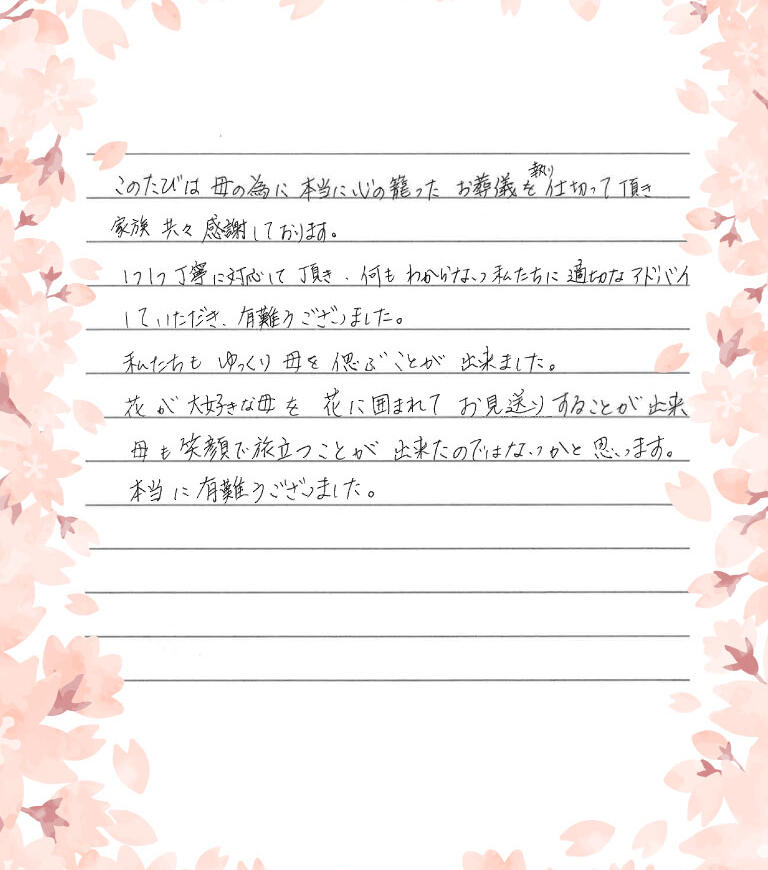 このたびは 母の為に 本当に心の籠った お葬儀を執り仕切って頂き
家族 共々 感謝しております。
1つ1つ丁寧に対応して 頂き、何も わからない私たちに 適切なアドバイ
していただき、有難うございました。
私たちも ゆっくり 母を 偲ぶことが 出来ました。
花が 大好きな母を 花に囲まれて お見送りすることが出来、
母も笑顔で旅立つことが 出来たのではないかと 思います。
本当に 有難うございました。